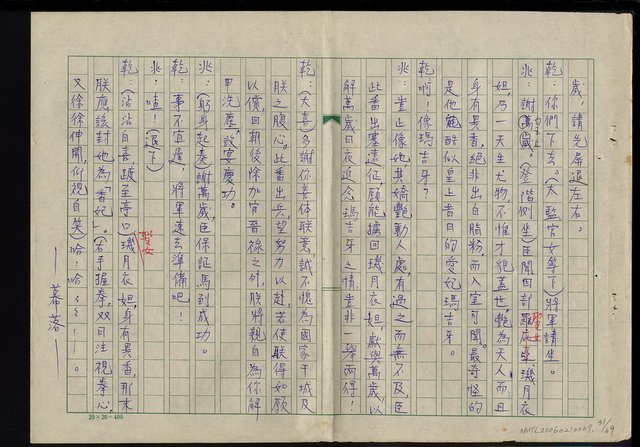 歲，請先屏退左右。
乾：你們下去。（太監宮女等下）將軍請坐。
兆：謝萬歲。（登階側坐）臣聞回部羅底聖女璣月衣
妲，乃一天生尤物，不惟才犯蓋世，艷為天人，而且
身有異香，絕非出自脂粉，而入室可聞。最奇怪的
是他酷似皇上昔日的愛妃瑪吉牙。
乾：喲！像瑪吉牙？
兆：豈止像她，其嬌艷動人處，有過之而無不及，臣
此番出塞遠征，願能擄回璣月衣妲，獻與萬歲，以
解萬歲日夜追念瑪吉牙之情，豈非一舉兩得！
乾：（大喜）多謝你善体朕意，誠不愧為國家干城及
朕之腹心，此番出兵，望努力以赴，若使朕得如願
以償，回朝後除加官晉祿之外，朕將親自為你解
甲洗塵，設宴慶功。
兆：（躬身起奏）謝萬歲，臣保証馬到成功。
乾：事不宜遲，將軍速去準備吧！
兆：喳！（退下）
乾：（沾沾自喜踱至亭口）聖女璣月衣妲，身有異香，那末
朕應該封她為「香妃」。（右手握拳，双目注視拳心，
又徐徐伸開，仰視自笑）哈：哈……！。
——幕落——
20×20=400
NMTL20060210009, 31/69